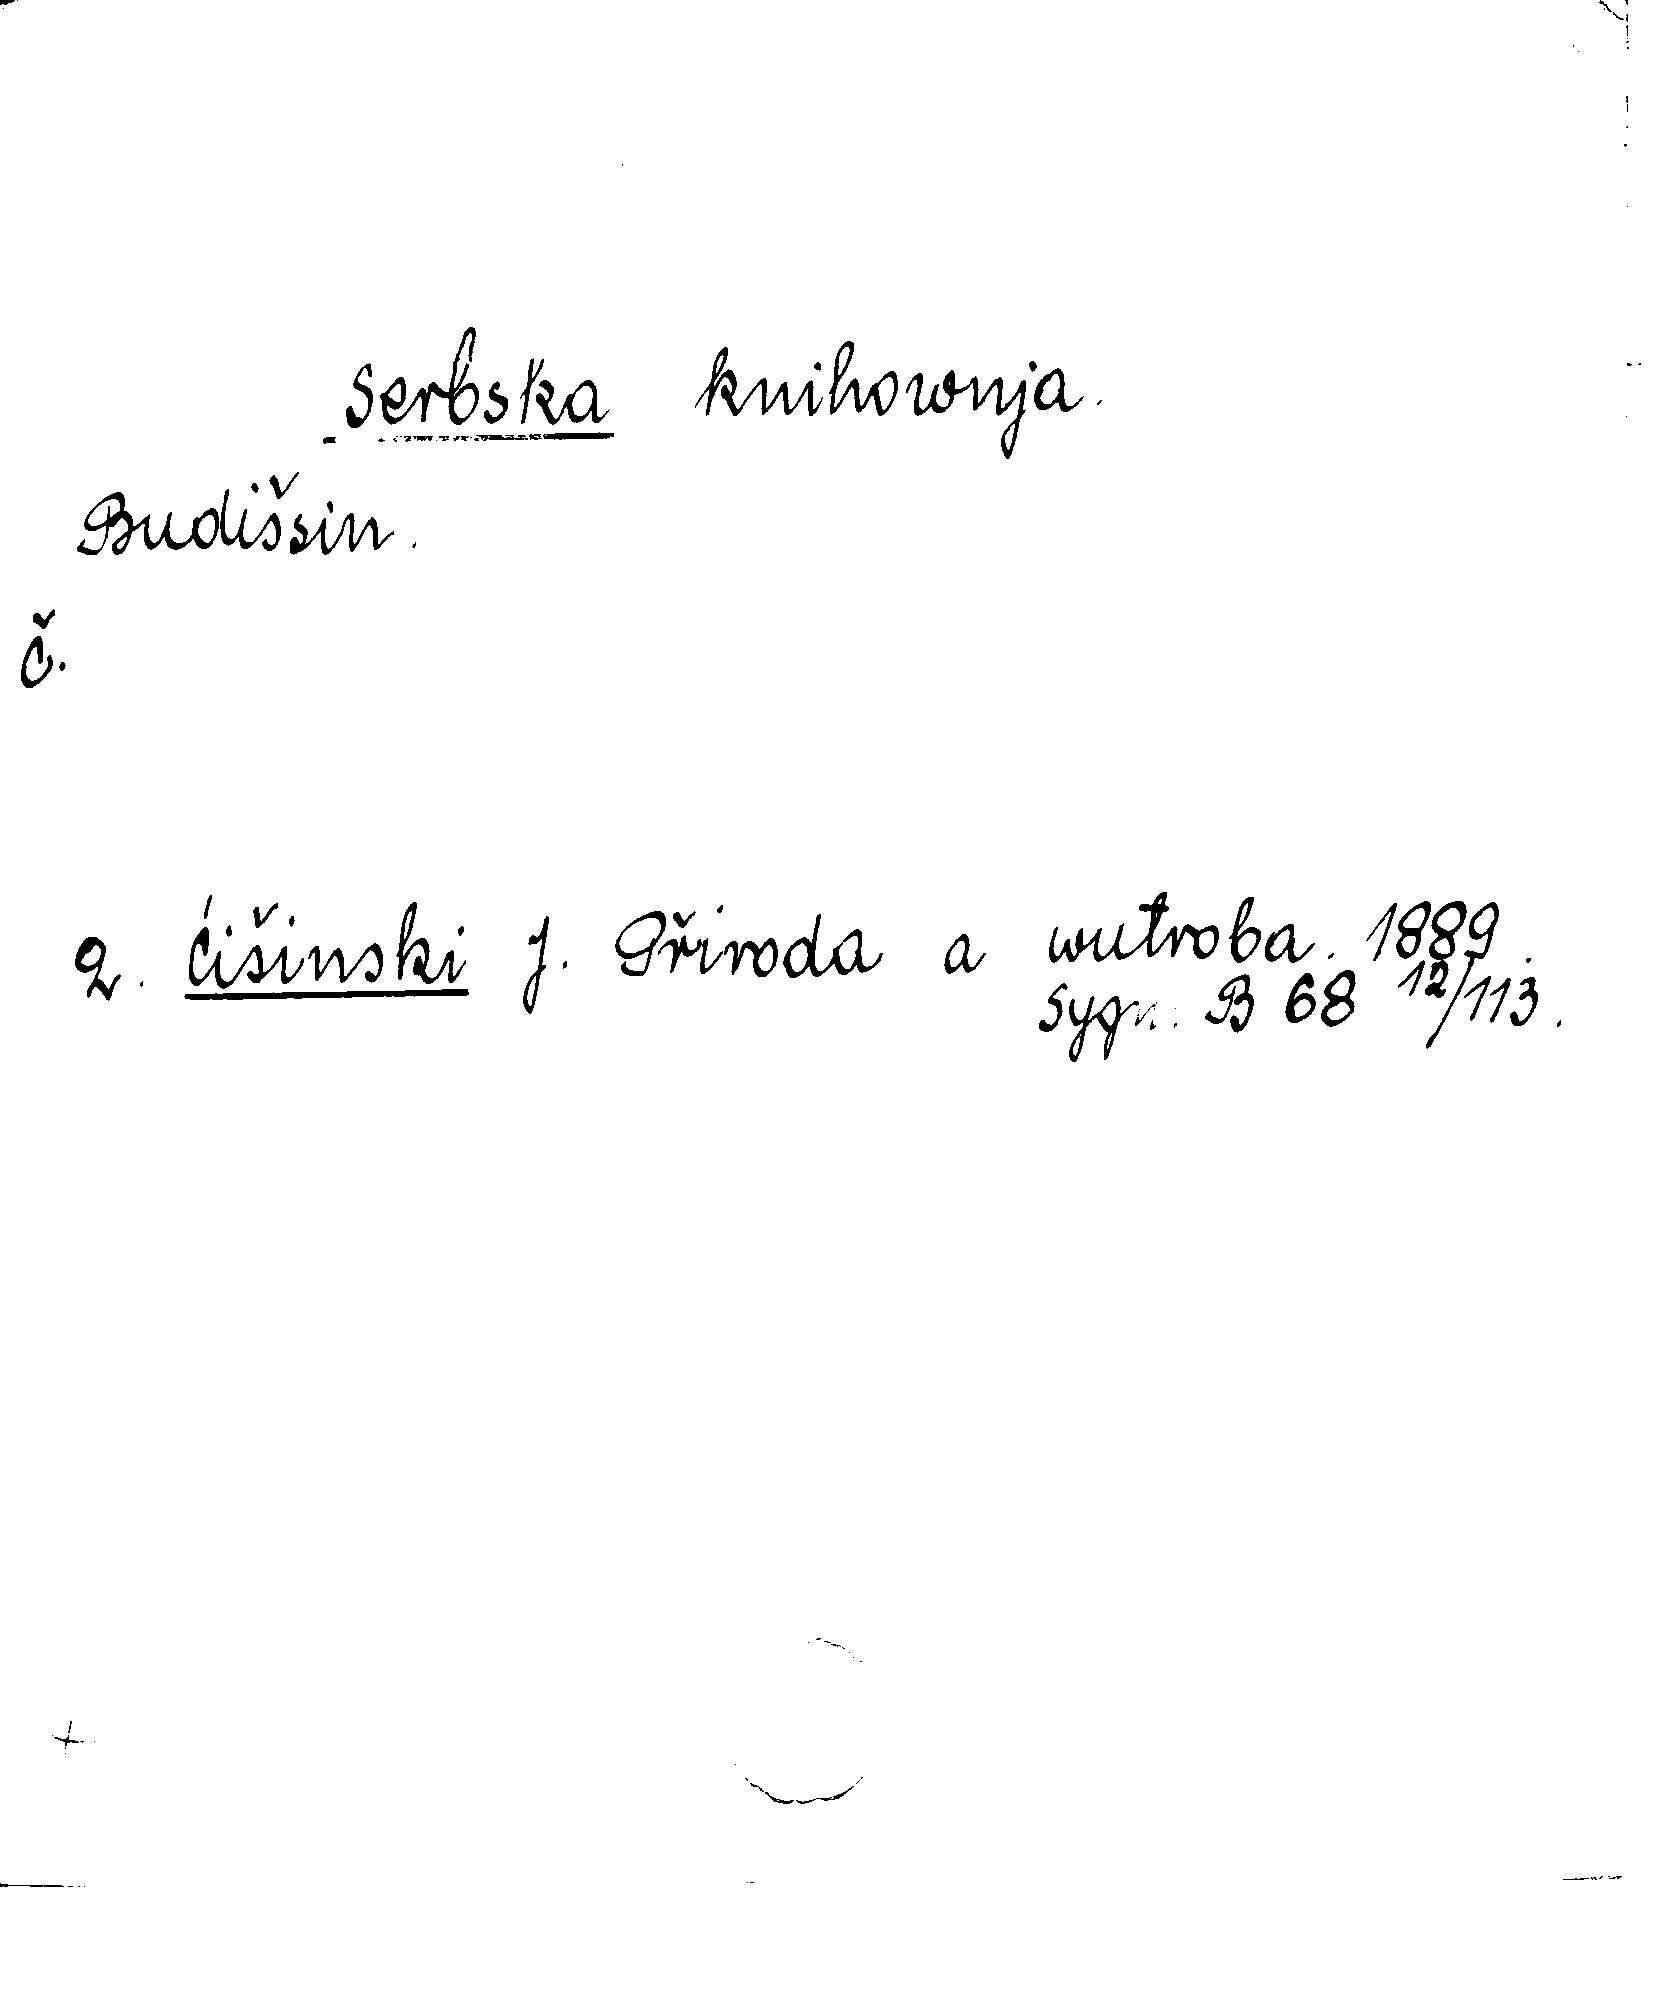 Serbska knihownja.
Budišsin.
č.
2. Ćišinski J. Přiroda a wutroba. 1889.
Sygn. B 68 12/113.